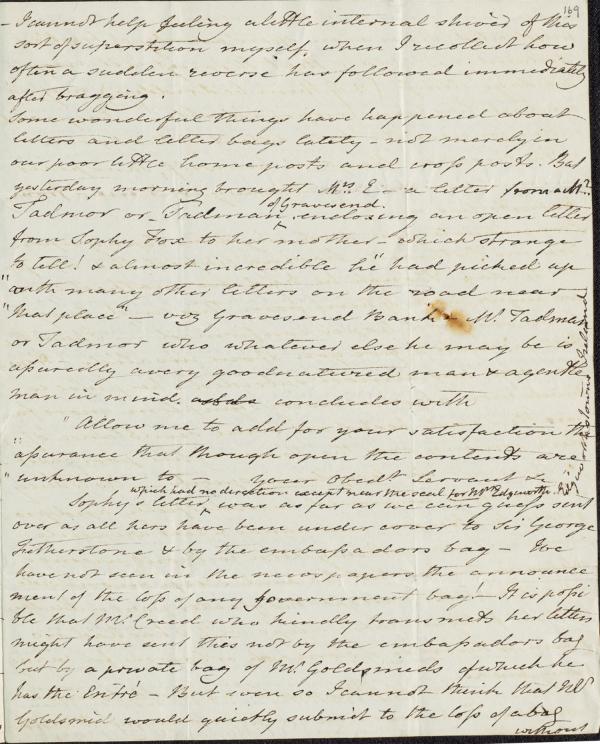 169
- I cannot help feeling a little internal shiver of this
sort of superstition myself, when I recollect how
often a sudden reverse has followed immediately
after bragging.
Some wonderful things have happened about
letters and letter bags lately - not merely in
our poor little home posts and cross posts. But
yesterday morning brought Mrs. E - a letter from a Mr.
of Gravesend.
Tadmor or Tadman ^ enclosing an open letter
from Sophy Fox to her mother - which strange
to tell! & almost incredible he "had picked up
"with many other letters on the road near
"that place" - viz Gravesend Bank & Mr. Tadman
or Tadmor who whatever else he may be is
assuredly a very goodnatured man & a gentle
man in mind. concludes with
"Allow me to add for your satisfaction the
"assurance that though open the contents are
"unknown to - your Obedt. Servant &
which had no direction except near the seal for Mrs Edgeworth
Edgeworthstown Ireland
Sophy's letter ^ was as far as we can guess sent
over as all hers have been under cover to Sir George
Fetherstone & by the embassadors bag - We
have not seen in the newspapers the announce
ment of the loss of any government bag! - It is possi
ble that Mr. Creed who kindly transmits her letters
might have sent this not by the embassadors bag
but by a private bag of Mr. Goldsmids of which he
has the Entré - But even so I cannot think that Mr
Goldsmid would quietly submit to the loss of a bag
without